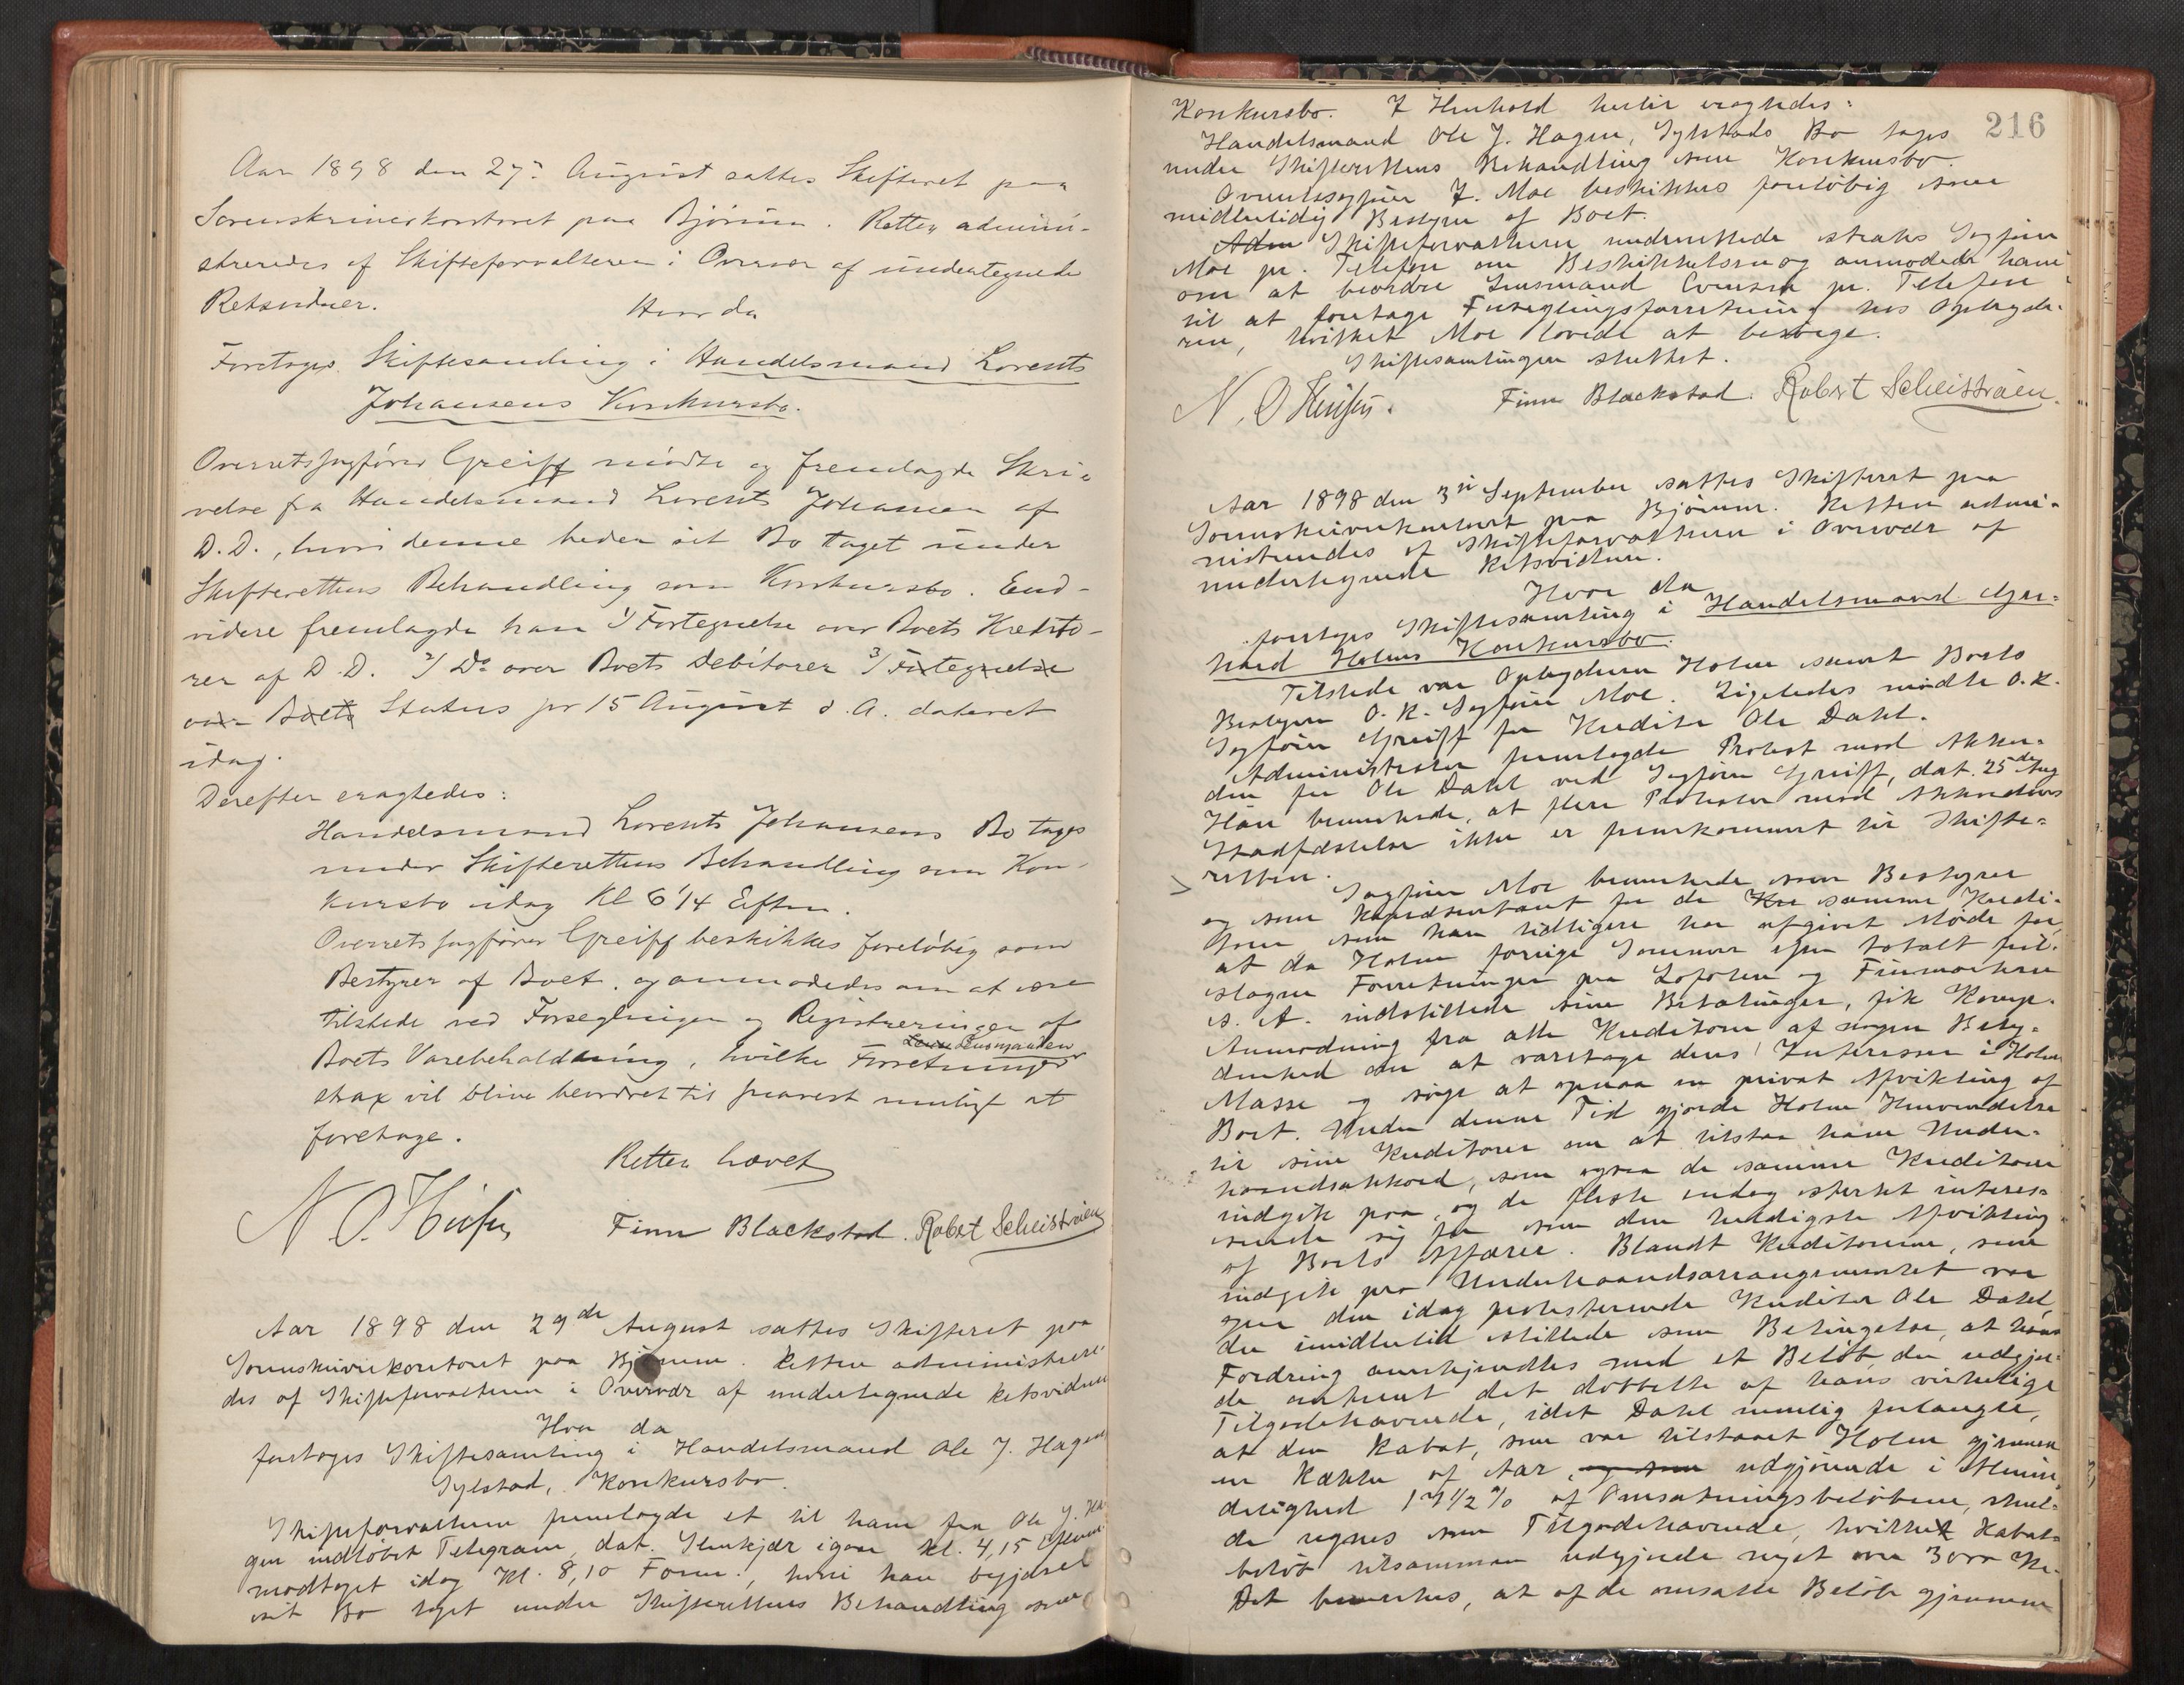 Aar 1898 den 27: August sattes Skifteret paa
Sorenskriverkontoret paa Bjørum. Retten admini-
streredes af Skifteforvalteren i Overvær af undertegnede
Retsvidner. Hvor da
Foretoges Skiftesamling i Handelsmand Lorents
Johansens Konkursbo.
Overretssagfører Greiff mødte og fremlagde Skri-
velse fra Handelsmand Lorents Johansen af
D.D., hvori denne beder sit Bo taget under
Skifterettens Behandling som Konkursbo. End-
videre fremlagde han 1/ Fortegnelse over Boets Kredito-
rer af D.D. 2/ Do over Boets Debitorer 3/ Fortegnelse
over Boets Status pr 15 August d.A. dateret
idag.
Derefter eragtedes:
Handelsmand Lorents Johansens Bo tages
under Skifterettens Behandling som Kon-
kursbo idag Kl 6 1/4 Efterm.
Overretssagfører Greiff beskikkes foreløbig som
Bestyrer af Boet, og anmodedes om at være
tilstede ved Forseglingen og Registreringen af
Lensmanden
Boets Varebeholdning, hvilke Forretninger
strax vil blive beordret til snarest muligt at
foretage.
Retten hævet
N. O. Finn Blackstad. Robert
Aar 1898 den 29de August sattes Skifteret paa
Sorenskriverkontoret paa Bjørum. Retten administrere-
des af Skifteforvalteren i Overvær af undertegnede Retsvidner
Hvor da
foretoges Skiftesamling i Handelsmand Ole J. Hagen
Sylstad, Konkursbo.
Skifteforvalteren fremlagde et til ham fra Ole J. Ha-
gen indløbet Telegram, dat. Stenkjær igaar kl. 4,15 Efterm.
modtaget idag Kl. 8,10 Form., hvori han begjæret
sit Bo taget under Skifterettens Behandling som
216
Konkursbo. I Henhold hertil eragtedes:
Handelsmand Ole J. Hagen, Sylstads Bo tages
under Skifterettens Behandling som Konkursbo.
Overretssagfører J. Moe beskikkes foreløbig som
midlertidig Bestyrer af Boet.
Adm Skifteforvalteren underrettede straks Sagfører
Moe pr. Telefon om Beskikkelsen og anmodede ham
om at beordre Lensmand pr. Telefon
til at foretage Forseglingsforretning hos Opbyde-
ren, hvilket Moe lovede at besørge.
Skiftesamlingen sluttet.
N. O. Finn Blackstad. Robert
Aar 1898 den 3die September sattes Skifteret paa
Sorenskriverkontoret paa Bjørum. Retten admi-
nistreredes af Skifteforvalteren i Overvær af
undertegnede Retsvidner.
Hvor da
foretoges Skiftesamling i Handelsmand
Holms Konkursbo.
Tilstede var Opbyderen Holm samt Boets
Bestyrer O.R. Sagfører Moe. Ligeledes mødte O.R.
Sagfører Greiff for Kreditor Ole Dahl.
Administrator fremlagde Protest mod Akkor-
den fra Ole Dahl ved Sagfører Greiff, dat. 25de Aug
Han bemærkede, at flere Protester mod Akkordens
Stadfæstelse ikke er fremkommet til Skifte-
retten.
Sagfører Moe bemærkede som Bestyrer
og som Repræsentant for de Kre samme Kredi-
torer som han tidligere har afgivet Møde for,
at da Holm forrige Sommer efter totalt feil-
slagne Forretninger paa Lofoten og Finmarken
s. A. indstillede sine Betalinger, fik Komp.
Anmodning fra alle Kreditorer af nogen Bety-
denhed om at varetage deres Interesser i Holms
Masse og søge at opnaa en privat Afvikling af
Boet. Under denne Tid gjorde Holm Henvendelse
til sine Kreditorer om at tilstaa ham Under-
haandsakkord, som ogsaa de samme Kreditorer
indgik paa, og de fleste endog sterkt interes-
serede sig for som den heldigste Afvikling
af Boets Affærer. Blandt Kreditorerne, som
indgik paa Underhaandsarrangementet var
ogsaa den idag protesterende Kreditor Ole Dahl,
der imidlertid stillede som Betingelse, at hans
Fordring anerkjendtes med et Beløb, der udgjor-
de omtrent det dobbelte af hans virkelige
Tilgodehavende, idet Dahl nemlig forlangte,
at den Rabat, som var tilstaaet Holm gjennem
en Række af Aar, og som udgjørende i Almin-
delighed 17 1/2 % af Omsætningsbeløbene, skul-
de regnes som Tilgodehavende, hvilket Rabat-
beløb tilsammen udgjorde noget over 3000 Kr.
Det bemærkes, at af de omsatte Beløb gjennem